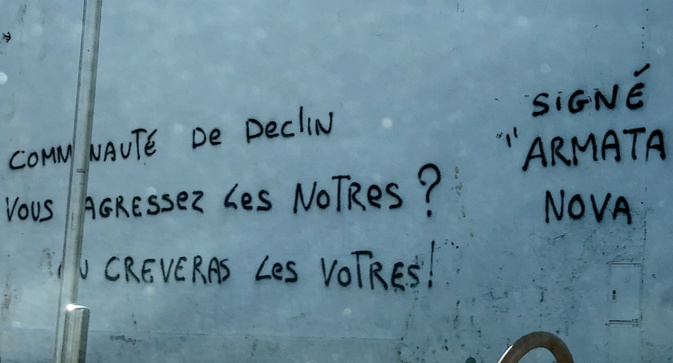 COMMUNAUTÉ DE DeCLIN
VOUS AGRESSEZ Les NOTRES ?
CREVERAS Les VOTRES!
SIGNÉ
l'ARMATA
NOVA